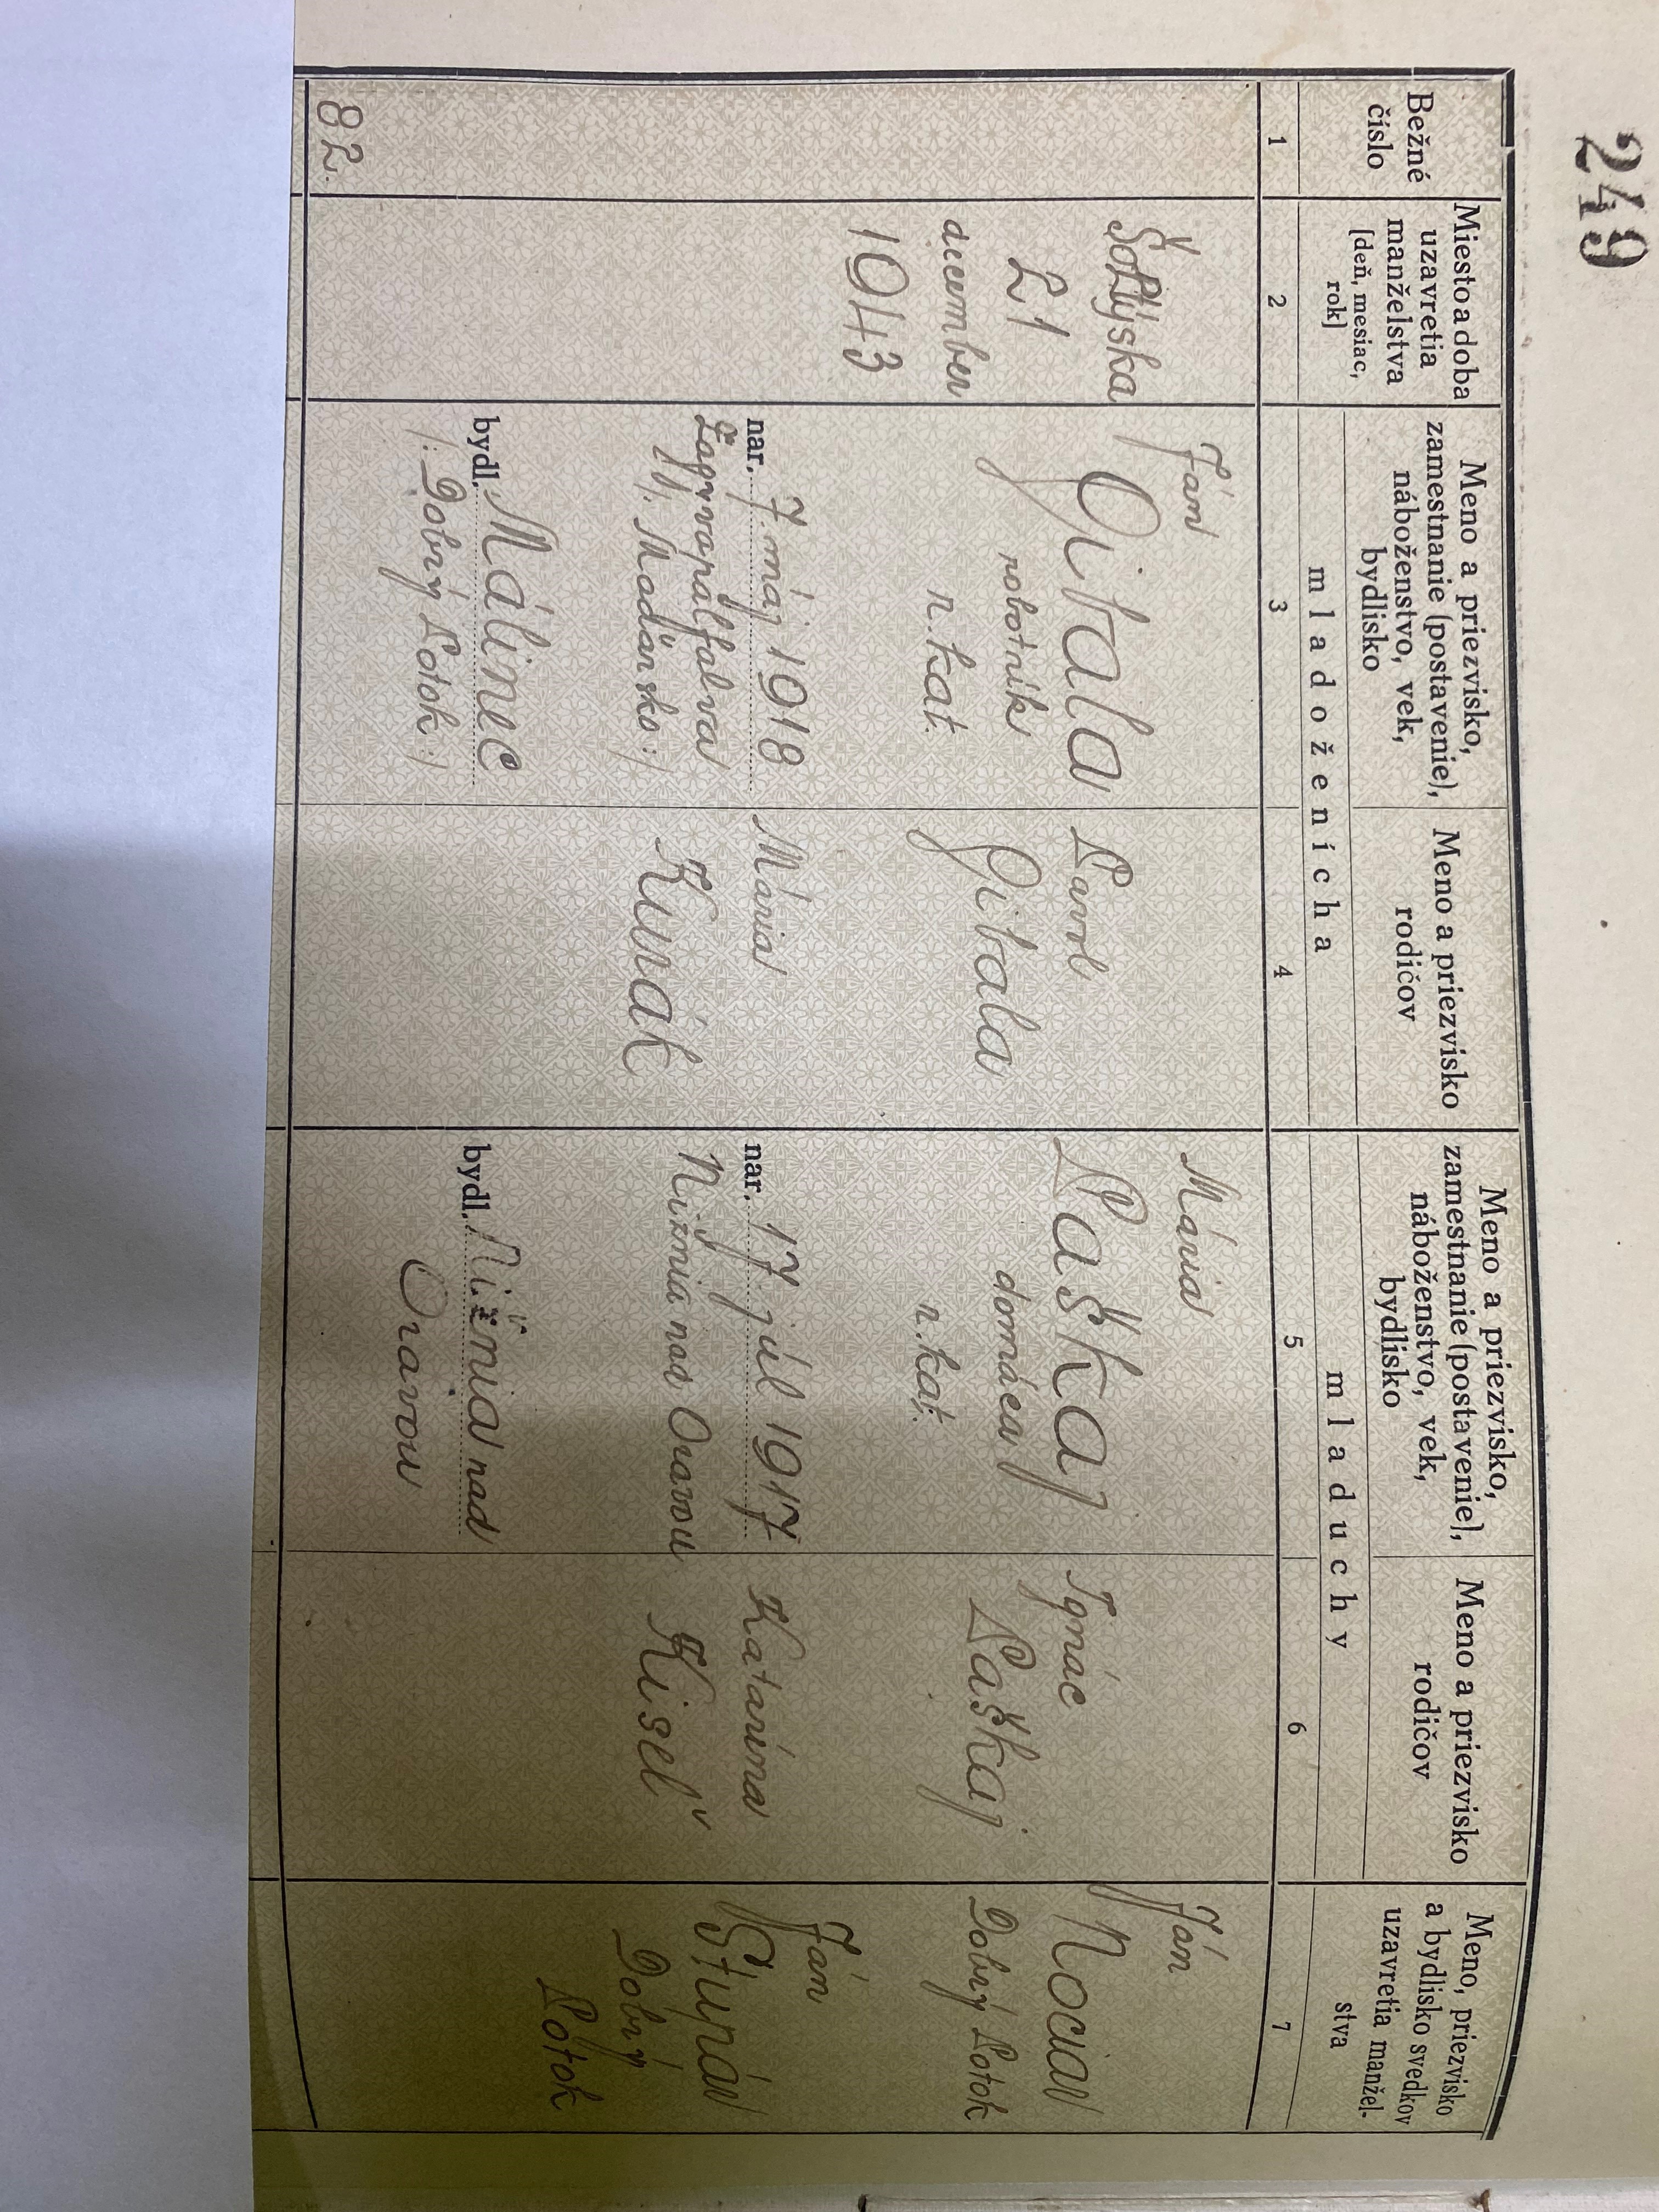 249
Bežné
číslo
Miesto a doba
uzavretia
manželstva
[deň, mesiac,
rok]
Meno a priezvisko,
zamestnanie (postavenie),
náboženstvo, vek,
bydlisko
Meno a priezvisko
rodičov
mladoženícha
Meno a priezvisko,
zamestnanie (postavenie),
náboženstvo, vek,
bydlisko
Meno a priezvisko
rodičov
mladuchy
Meno, priezvisko
a bydlisko svedkov
uzavretia manžel-
stva
1 2 3 4 5 6 7
21
december
1943
Ján
Gitala
robotník
r. kat.
nar. 7. máj 1918
Zagyvapálfalva
/: Maďarsko :/
bydl. Málinec
/: Dobrý Potok :/
Pavol
Gitala
Mária
Kurák
Mária
Laškaj
domáca
r. kat.
nar. 17. júl 1917
Nižnia nad Oravou
bydl. Nižnia nad
Oravou
Ignác
Laškaj
Katarína
Kiseľ
Ján
Nociar
Dobrý Potok
Ján
Štupár
Dobrý
Potok
82.